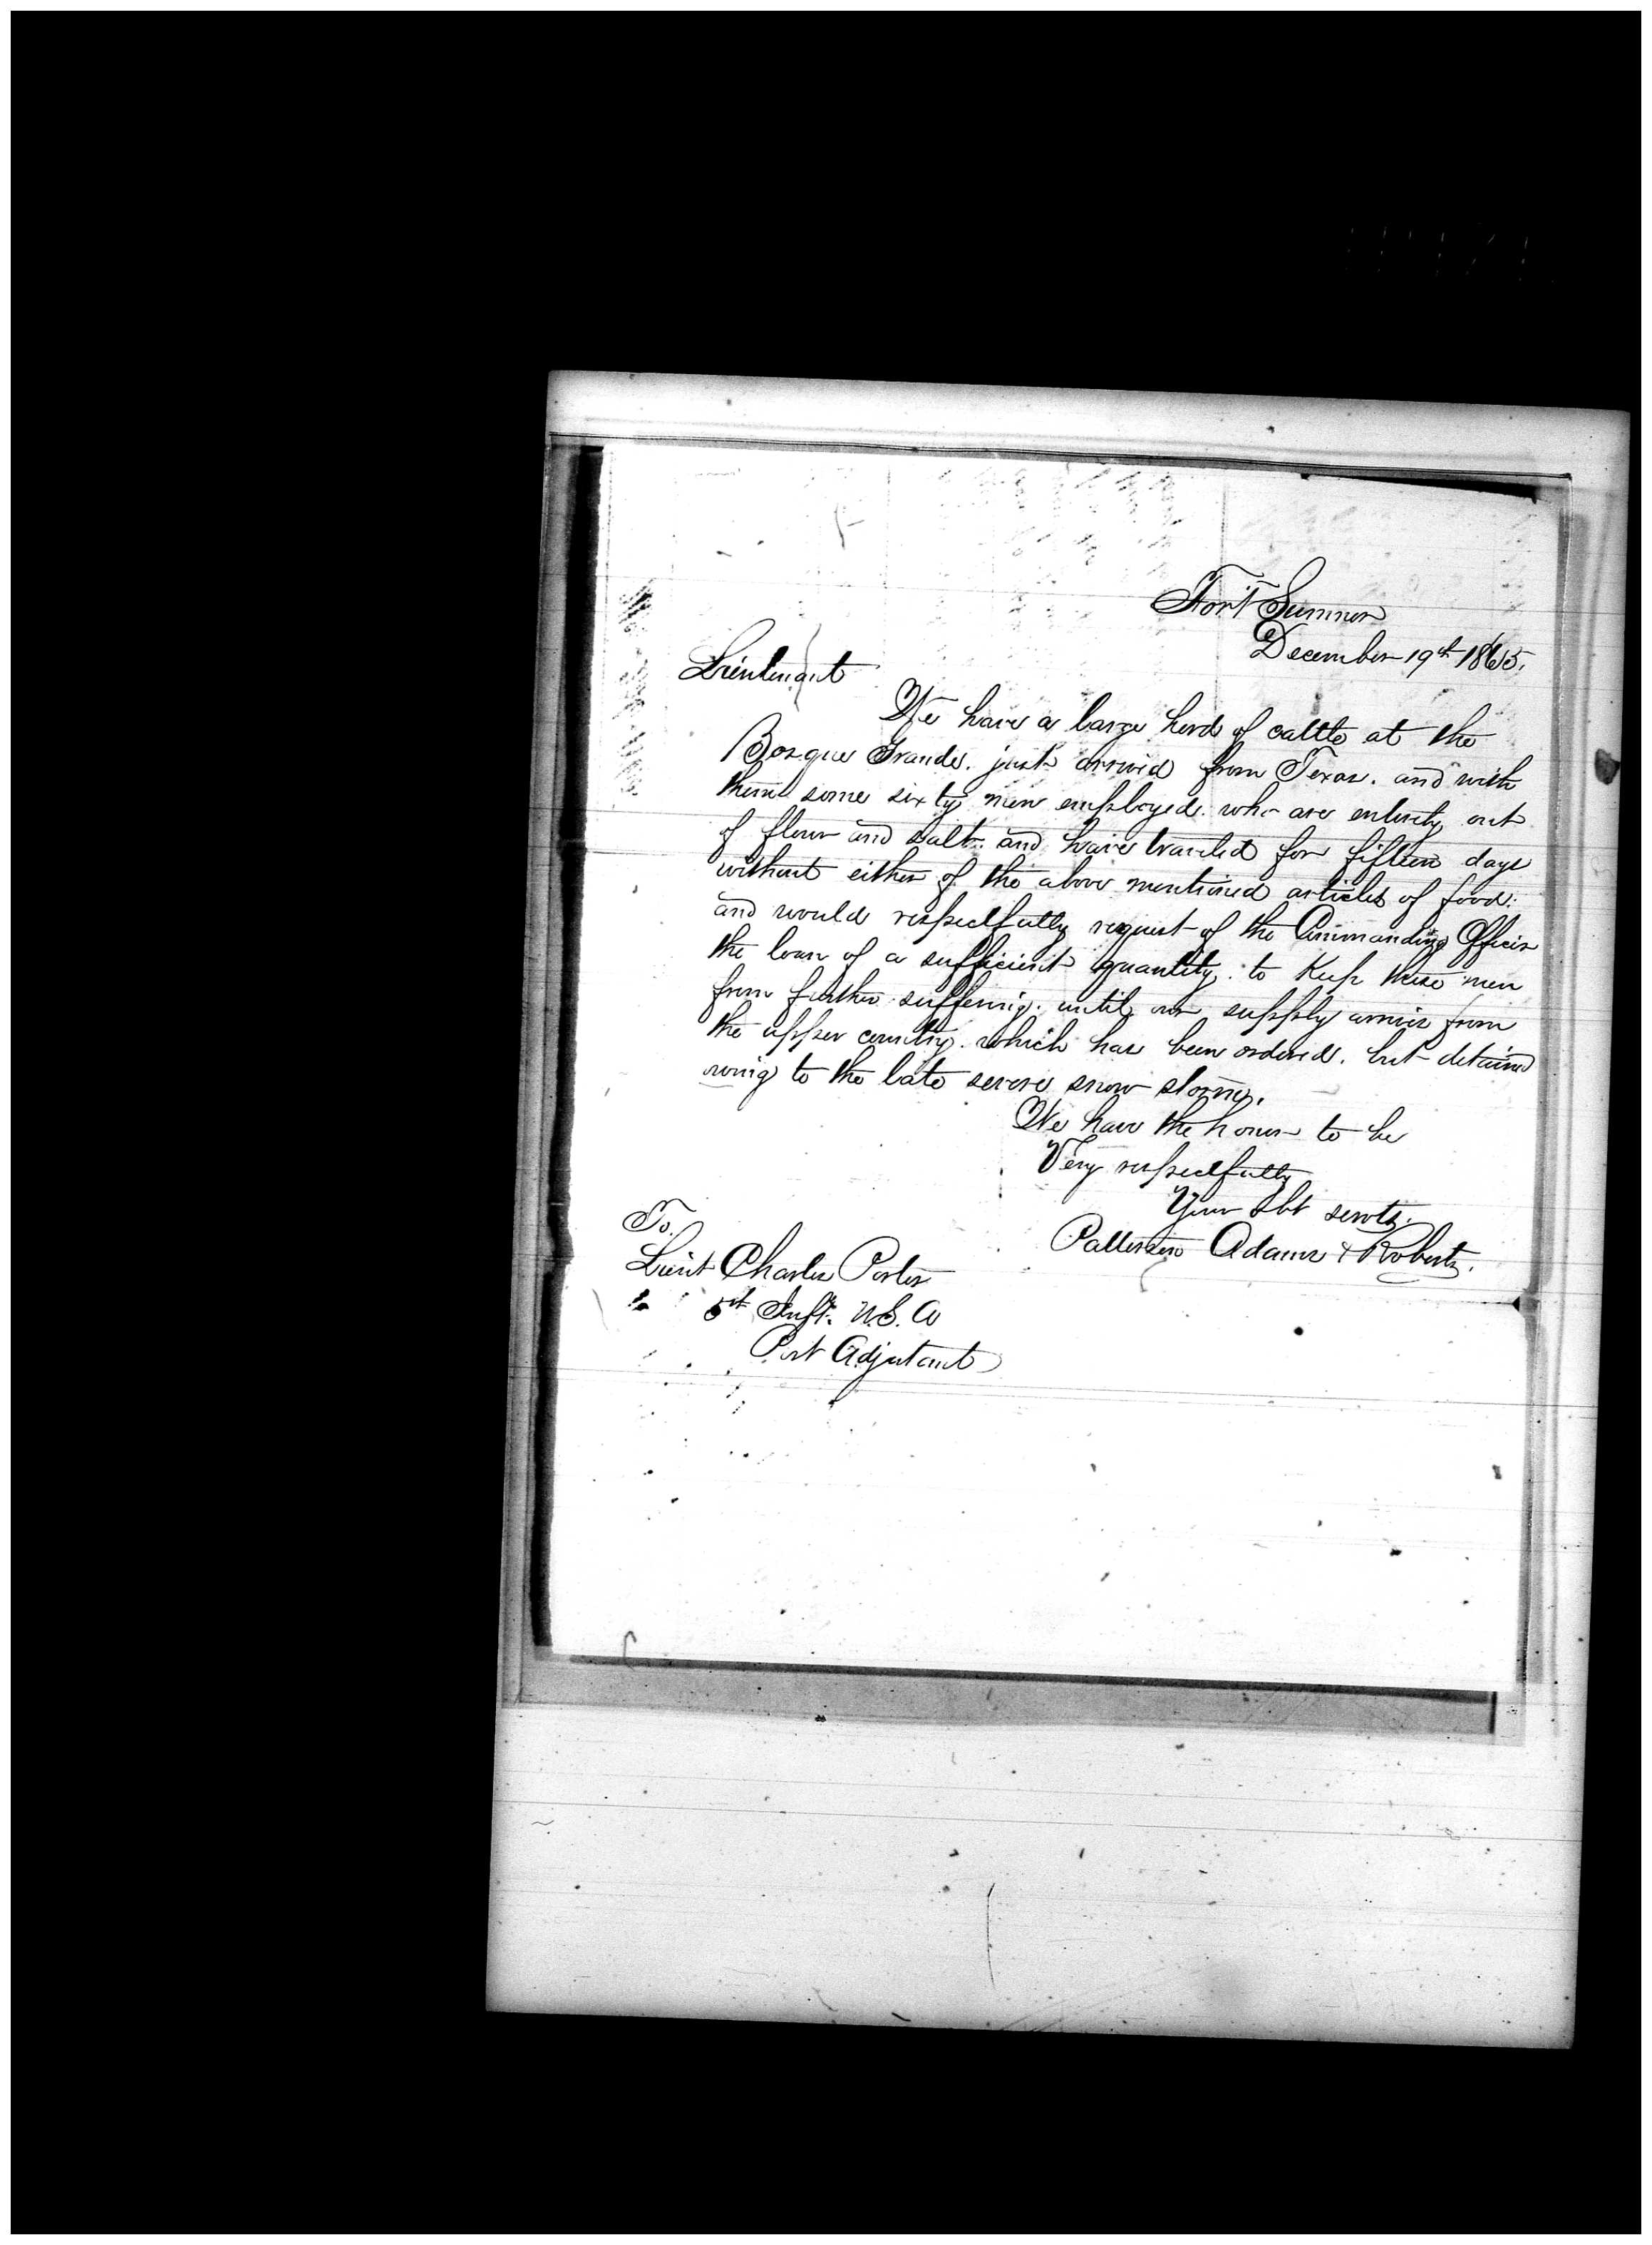 Fort Sumner
December 19th 1865.
Lieutenant
We have a large herd of cattle at the
Bosque Grande. just arrived from Texas. and with
them some sixty men employed. who are entirely out
of flour and salt. and have traveled for fifteen days
without either of the above mentioned articles of food.
and would respectfully request of the Commanding Officer
the loan of a sufficient quantity. to Keep these men
from further suffering. until our supply arrives from
the upper country. which has been ordered. but detained
owing to the late severe snow storm.
We have the honor to be
Very respectfully
Your Obt servts.
Patterson Adams & Roberts.
To.
Lieut Charles Porter
5th Inft. U.S.A
Post Adjutant